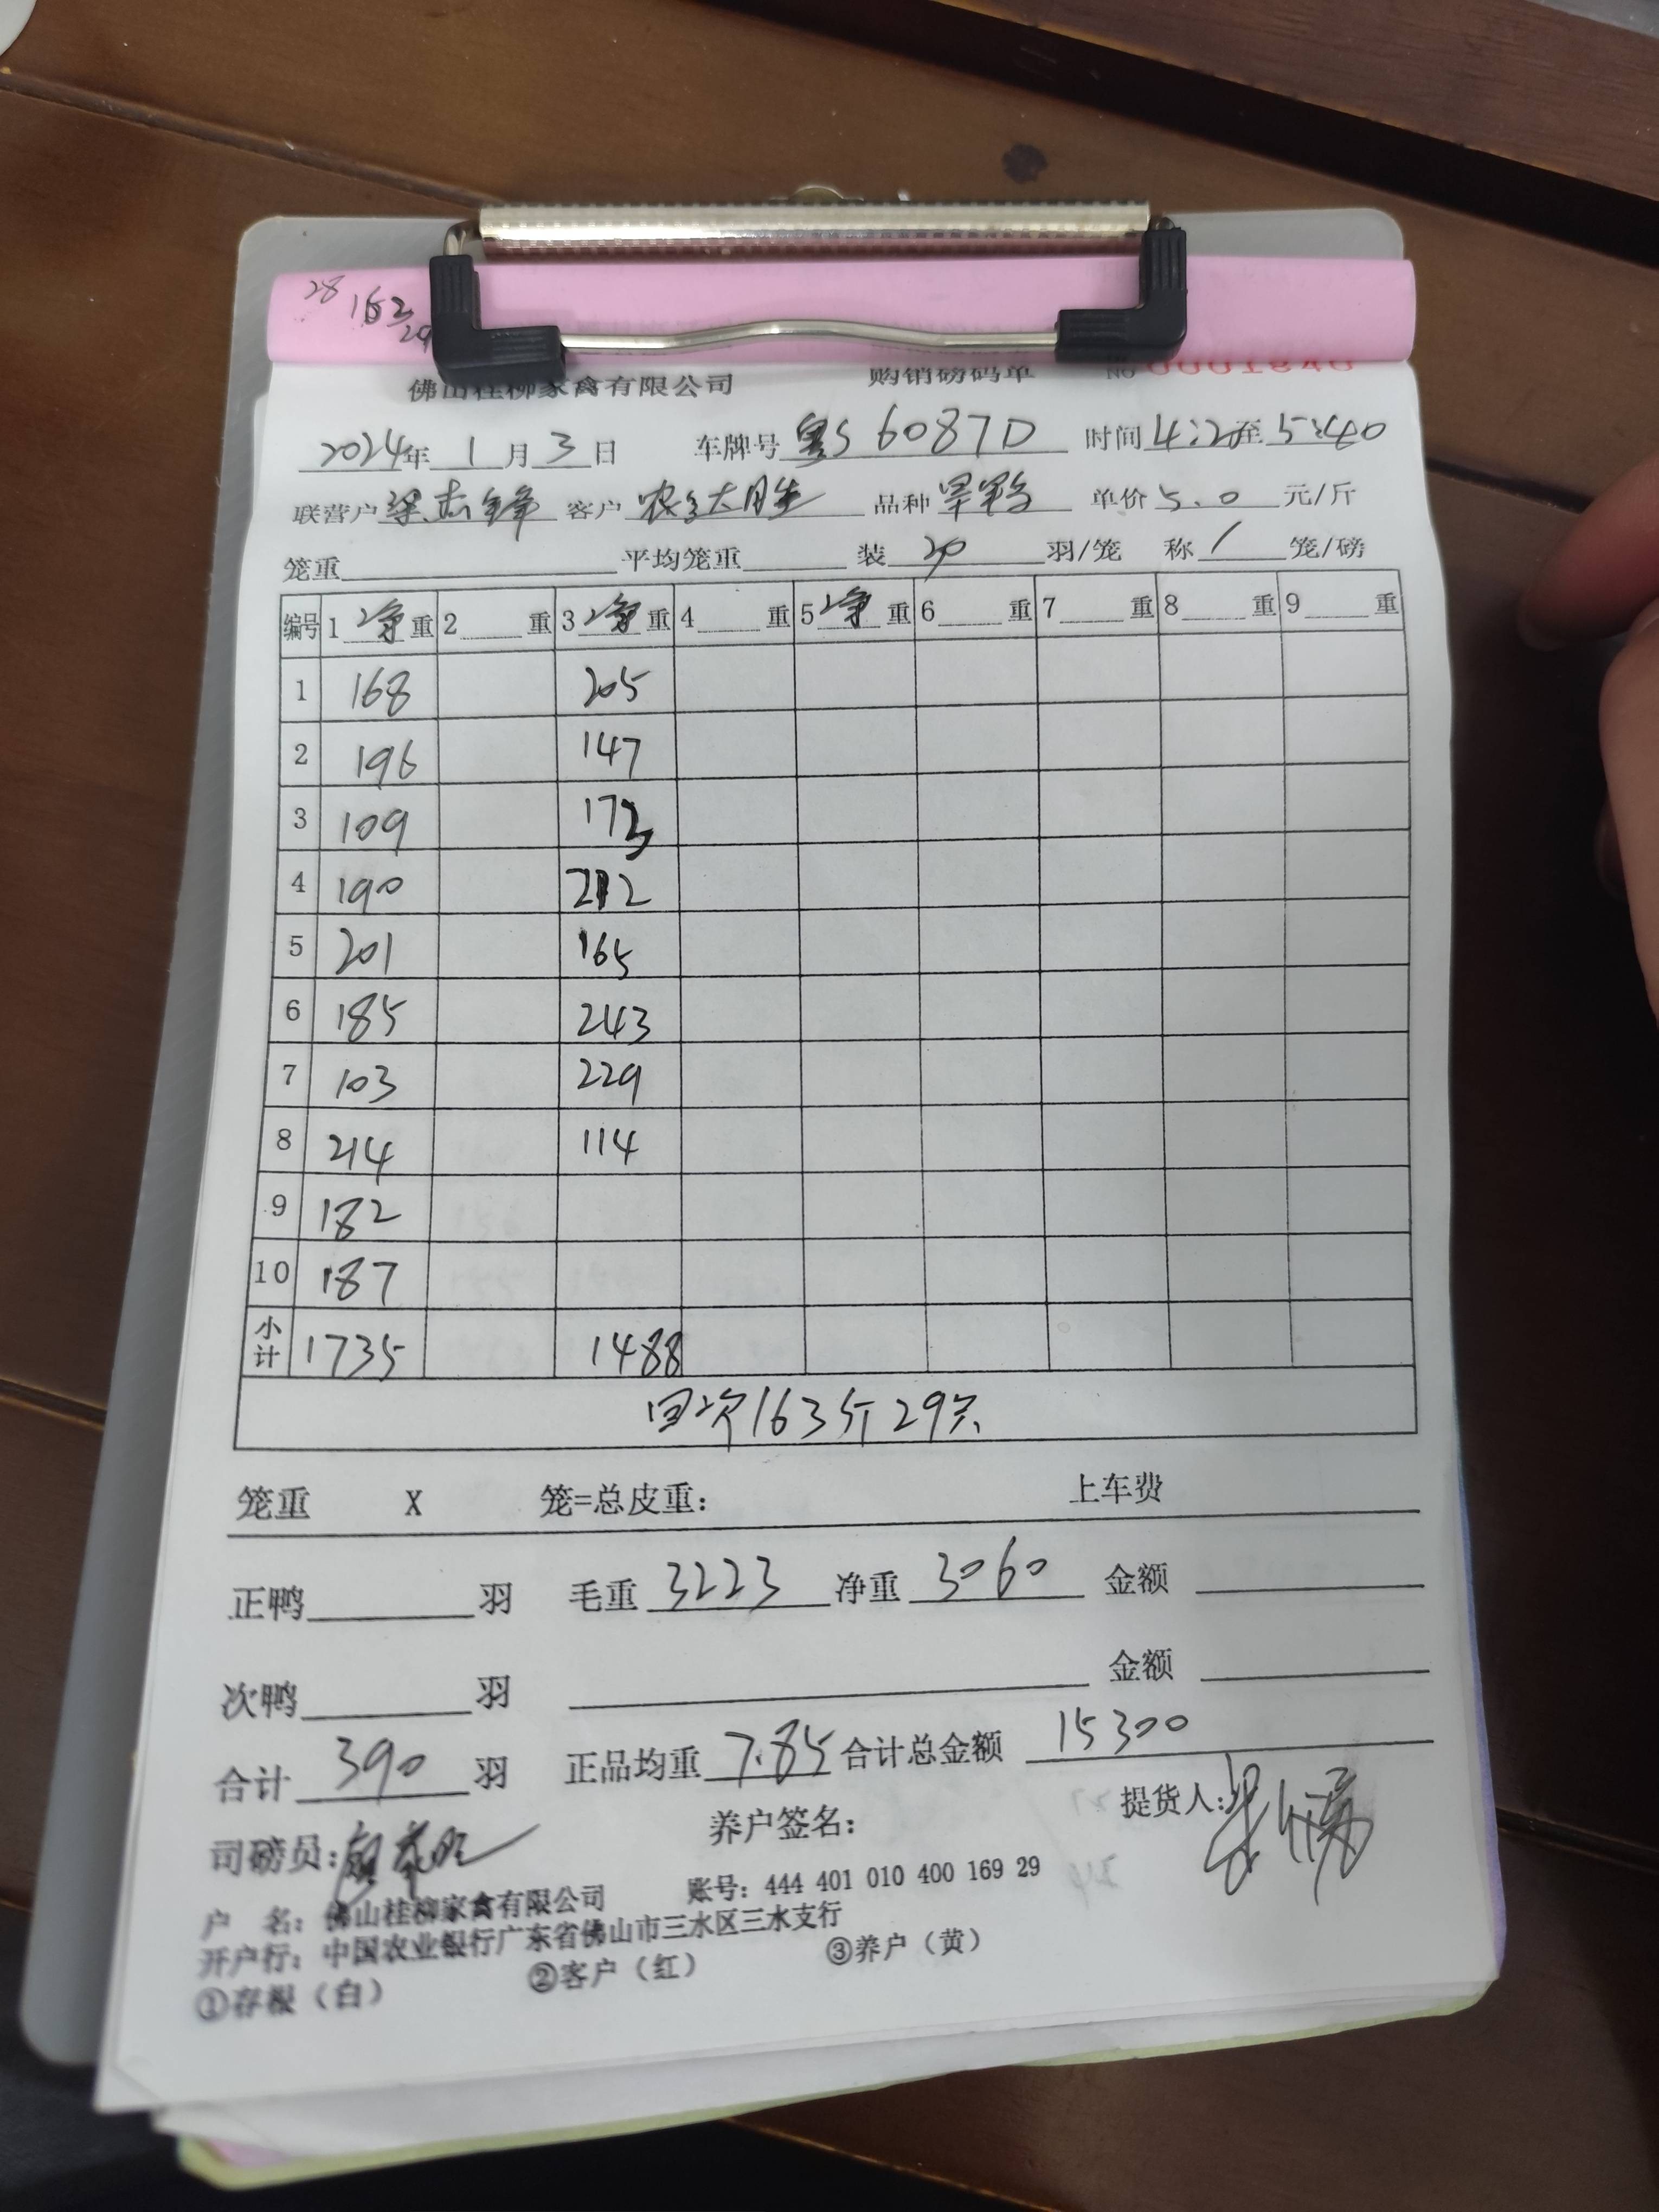 28 163
29
佛山桂柳家禽有限公司 购销磅码单 No 0001840
2024年 1月 3日 车牌号 粤S 6087D 时间 4:20至 5:40
联营户 梁志锋 客户 农乡大胜 品种 单价 5.0 元/斤
笼重 平均笼重 装 20 羽/笼 称 1 笼/磅
编号 1 净 重 2 重 3 净 重 4 重 5 净 重 6 重 7 重 8 重 9 重
1 168 205
2 196 147
3 109 173
4 190 212
5 201 165
6 185 243
7 103 229
8 214 114
9 182
10 187
小计 1735 1488
回次163斤29只
笼重 X 笼=总皮重: 上车费
正鸭 羽 毛重 3223 净重 3060 金额
次鸭 羽 金额
合计 390 羽 正品均重 7.85 合计总金额 15300
司磅员: 养户签名: 提货人:
户 名: 佛山桂柳家禽有限公司 账号: 444 401 010 400 169 29
开户行: 中国农业银行广东省佛山市三水区三水支行
①存根（白） ②客户（红） ③养户（黄）